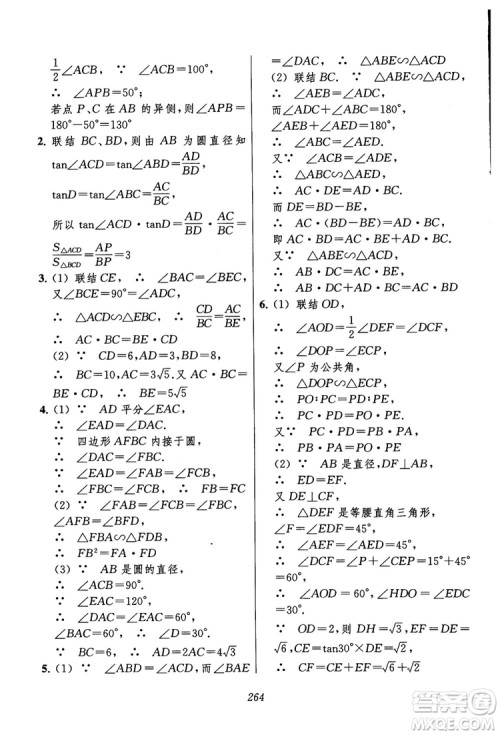 1/2∠ACB, ∵ ∠ACB=100°,
∴ ∠APB=50°;
若点 P、C 在 AB 的异侧,∠APB=
180°-50°=130°
2. 联结 BC、BD,则由 AB 为圆直径知
tan∠ACD=tan∠ABD=AD/BD,
tan∠D=tan∠ABC=AC/BC,
所以 tan∠ACD·tanD=AD/BD·AC/BC=
S△ACD/S△BCD=AP/BP=3
3. (1) 联结 CE, ∴ ∠BAC=∠BEC,
又∠BCE=90°=∠ADC,
∴ △ACD∽△EBC, ∴ CD/BC=AC/BE,
∴ AC·BC=BE·CD
(2) ∵ CD=6,AD=3,BD=8,
∴ BC=10,AC=3√5. ∴ BE=5√5
4. (1) ∵ AD 平分∠EAC,
∴ ∠EAD=∠DAC.
∵ 四边形 AFBC 内接于圆,
∴ ∠DAC=∠FBC.
∵ ∠EAD=∠FAB=∠FCB,
∴ ∠FBC=∠FCB, ∴ FB=FC
(2) ∵ ∠FAB=∠FCB=∠FBC,
∠AFB=∠BFD,
∴ △FBA∽△FDB.
∴ FB²=FA·FD
(3) ∵ AB 是圆的直径,
∴ ∠ACB=90°.
∵ ∠EAC=120°,
∴ ∠DAC=1/2∠EAC=60°,
∠BAC=60°. ∴ ∠D=30°.
∵ BC=6, ∴ AC=2√3, ∴ AD=4√3
5. (1) ∵ ∠ABD=∠ACD,而∠BAE
=∠DAC, ∴ △ABE∽△ACD
(2) 联结 BC. ∵ △ABE∽△ACD,
∴ ∠AEB=∠ADC.
而∠ADC+∠ABC=180°,
∠AEB+∠AED=180°,
∴ ∠ABC=∠AED.
又∵ ∠ACB=∠ADE,
∴ △ABC∽△AED
∴ AC·DE=AD·BC.
而 DE=BD-BE,
∴ AC·(BD-BE)=AD·BC,
即 AC·BD-AC·BE=AD·BC.
又∵ △ABE∽△ACD,
∴ AB·DC=AC·BE.
∴ AB·DC+AD·BC=AC·BD
6. (1) 联结 OD,
∴ ∠AOD=1/2∠EOD=∠DCF,
∴ ∠DOP=∠ECP,
又∠P 为公共角,
∴ △DOP∽△ECP.
∴ PO:PC=PD:PE,
∴ PO·PE=PD·PC.
又∵ PD·PC=PB·PA,
∴ PB·PA=PO·PE
(2) ∵ AB 是直径,DF⊥AB,
∴ ED=EF.
∵ DE⊥CF,
∴ △DEF 是等腰直角三角形,
∠F=∠EDF=45°,
∴ ∠AEF=∠AED=45°.
∵ ∠P=15°, ∴ ∠DCE=30°,
∴ ∠AOD=30°, ∠HDO=∠EDC
=60°.
∵ OD=2,则 DH=√3,DE=
√6,CE=tan30°×DE=√2,
∴ CF=CE+EF=√2+√6
264